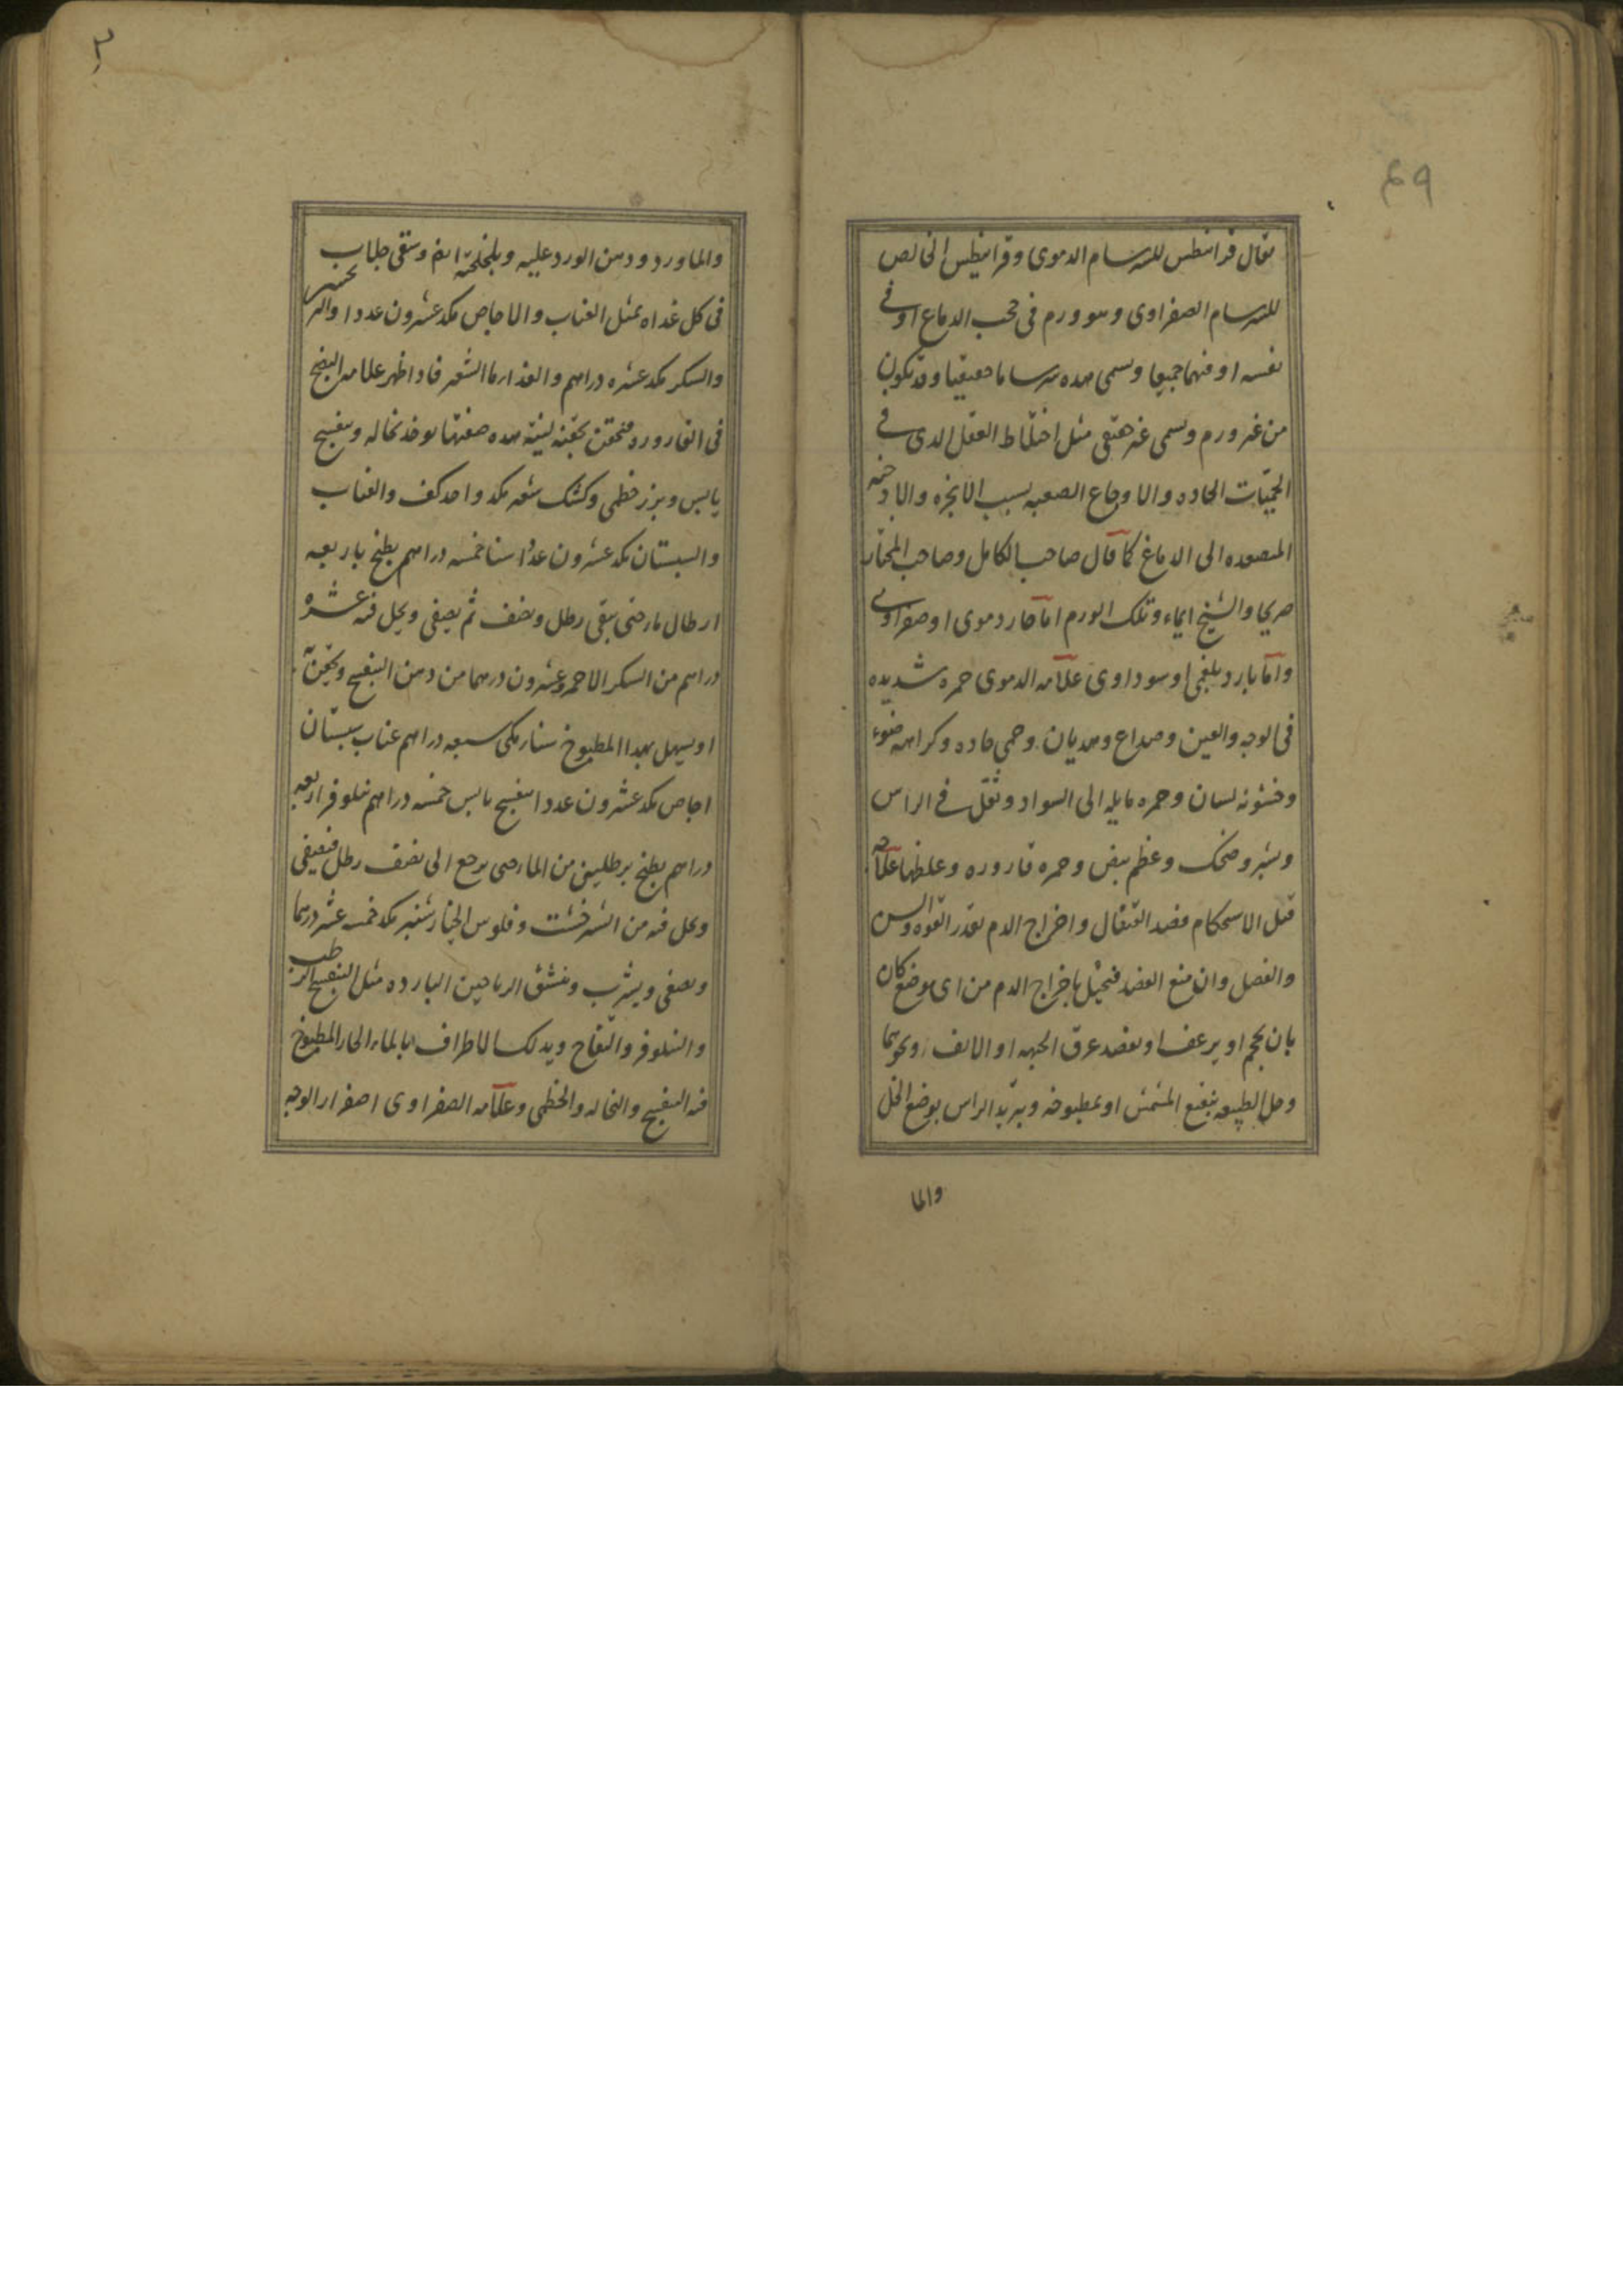 ٤٩
يقال قرانيطس للسرسام الدموى وقرانيطس الخالص
للسرسام الصفراوى وهو ورم فى حجب الدماغ او فى
نفسه او فيهما جميعا ويسمى هذه سرساما حقيقيا وقد تكون
من غير ورم ويسمى غير حقيقى مثل اختلاط العقل الذى فى
الحميات الحاده والاوجاع الصعبه بسبب الابخره والادخنه
المتصعده الى الدماغ كما قال صاحب الكامل وصاحب المختار
صريحا والشيخ ايماء وتلك الورم اما حار دموى او صفراوى
واما بارد بلغمى او سوداوى علامه الدموى حمره شديده
فى الوجه والعين وصداع وهذيان وحمى حاده وكراهه ضوء
وخشونه لسان وحمره مايله الى السواد وثقل فى الراس
وضحك وعظم نبض وحمره قاروره وغلظها علاجه
قبل الاستحكام فصد القيفال واخراج الدم بقدر القوه والسن
والفصل وان منع الفصد فتحيل باخراج الدم من اى موضع كان
بان يحجم او يرعف او يفصد عرق الجبهه او الانف ونحوهما
وحل الطبيعه بنقيع المشمش او بمطبوخه وتبريد الراس بوضع الخل
والما
والماورد ودهن الورد عليه وبلخلخته ايضا وسقى جلاب
فى كل غداه بمثل العناب والاجاص مكد عشرون عددا
والسكر مكد عشره دراهم والغذا ر ما الشعير فاذا ظهر علامه النضج
فى القاروره فتحقن بحقنه لينه هذه صفتها يوخذ نخاله وبنفسج
يابس وبزر خطمى وكشك شعير مكد واحد كف والعناب
والسبستان مكد عشرون عددا سنا خمسه دراهم يطبخ باربعه
ارطال ما حتى يبقى رطل ونصف ثم يصفى ويحل فيه عشره
دراهم من السكر الاحمر وعشرون درهما من دهن البنفسج ويحقن به
او يسهل بهذا المطبوخ سنا مكى سبعه دراهم عناب سبستان
اجاص مكد عشرون عددا بنفسج يابس خمسه دراهم نيلوفر اربعه
دراهم يطبخ برطلين من الما حتى يرجع الى نصف رطل فيصفى
ويحل فيه من الشيرخشت وفلوس الخيارشنبر مكد خمسه عشر درهما
ويصفى ويشرب وينشق الرياحين البارده مثل البنفسج الرطب
والنيلوفر والتفاح ويدلك الاطراف بالماء الحار المطبوخ
فيه البنفسج والنخاله والخطمى وعلامه الصفراوى اصفرار الوجه